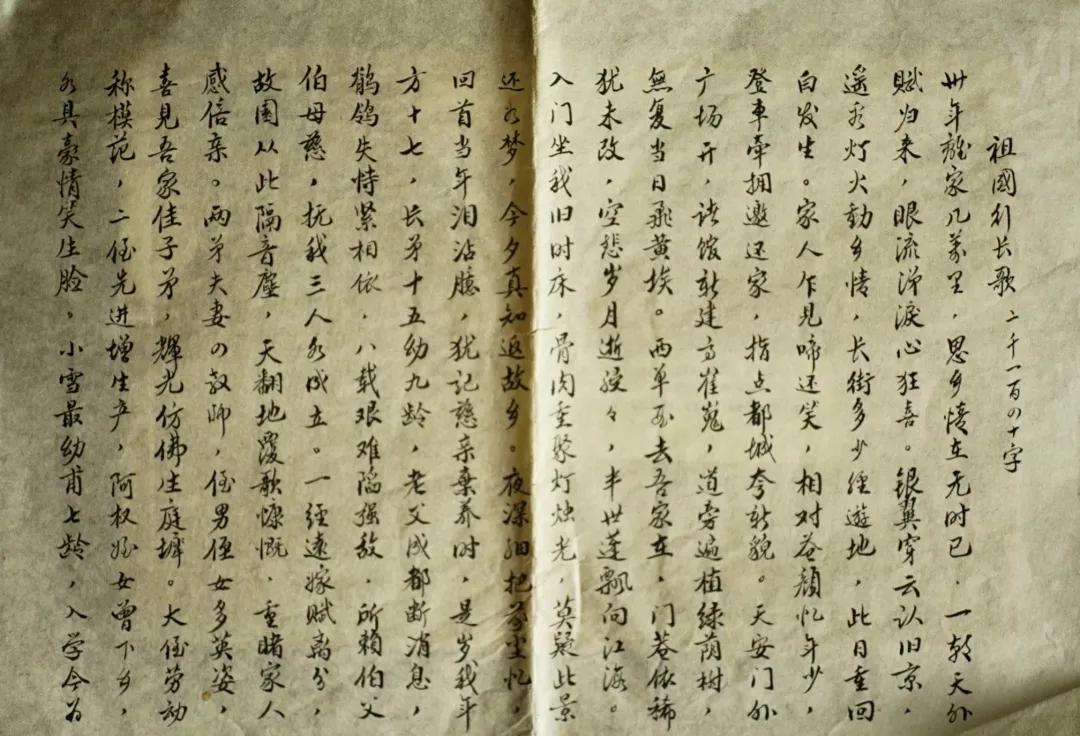 祖國行长歌 二千一百四十字
卅年離家几万里，思乡情在无时已．一朝天外
赋归来，眼流涕淚心狂喜。银翼穿云认旧京，
遥看灯火動乡情，长街多少经遊地，此日重回
白发生。家人乍见啼还笑，相对苍颜忆年少，
登車牵拥邀还家，指点都城夸新貌。天安门外
广场开，诸馆新建高崔嵬，道旁遍植绿荫树，
無复当日飛黄埃。西单西去吾家在，门巷依稀
犹未改，空悲岁月逝骎々，半世蓬飘向江海。
入门坐我旧时床，骨肉重聚灯烛光，莫疑此景
还如梦，今夕真知返故乡。夜深细把前尘忆，
回首当年泪沾臆，犹记慈亲棄养时，是岁我年
方十七，长弟十五幼九龄，老父成都断消息，
鹡鸰失恃紧相依．八载艰难陷强敌．所赖伯父
伯母慈，抚我三人各成立。一经遠嫁赋离分，
故園从此隔音塵，天翻地覆歌慷慨．重睹家人
感倍亲。两弟夫妻四教师，侄男侄女多英姿，
喜見吾家佳子弟，輝光仿佛生庭墀。大侄劳动
称模范，二侄先进增生产，阿权侄女曾下乡，
各具豪情笑生脸。小雪最幼甫七龄，入学今为